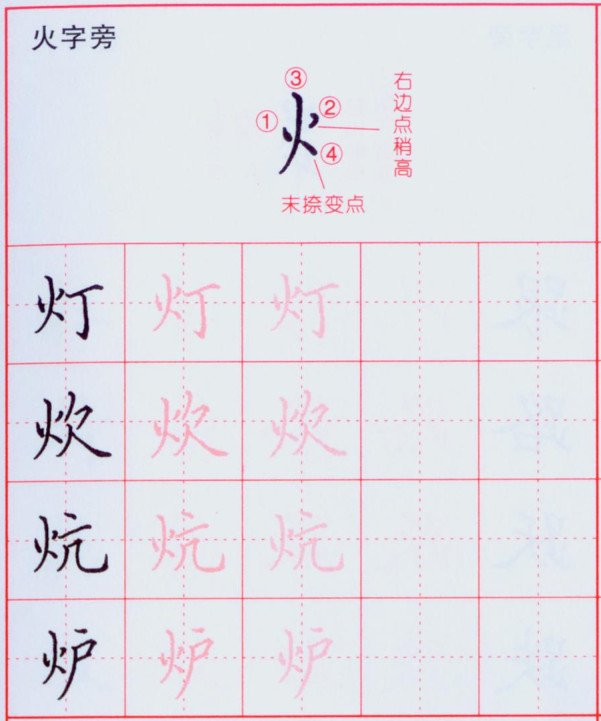 火字旁
③
①
②
④
火
右边点稍高
末捺变点
灯 灯 灯
炊 炊 炊
炕 炕 炕
炉 炉 炉